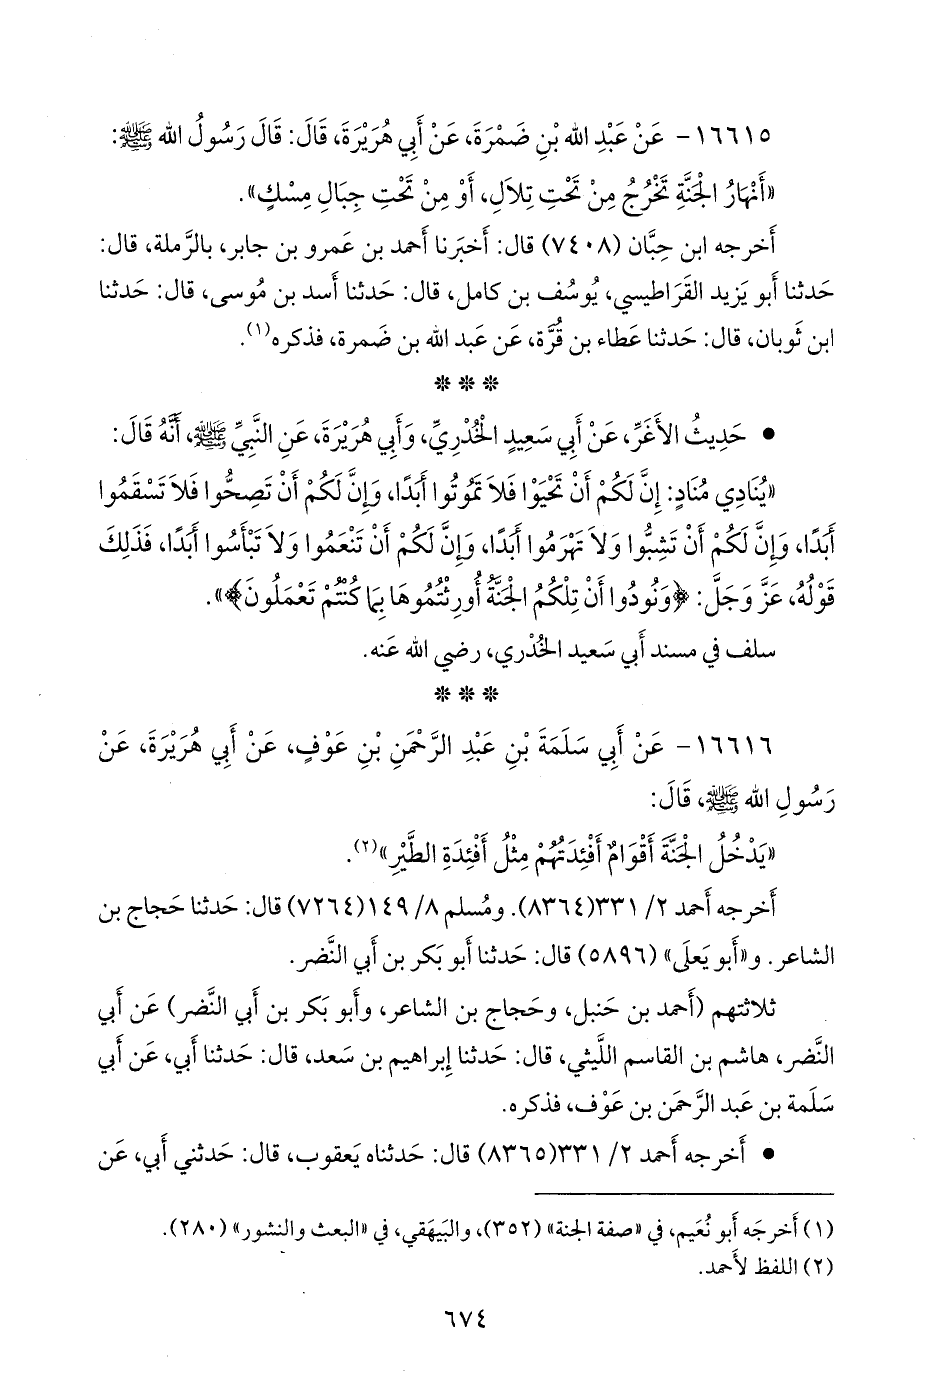 ١٦٦١٥- عَنْ عَبْدِ الله بْنِ ضَمْرَةَ، عَنْ أَبِي هُرَيْرَةَ، قَالَ: قَالَ رَسُولُ الله ﷺ:
«أَنْهَارُ الْجَنَّةِ تَخْرُجُ مِنْ تَحْتِ تِلاَلِ، أَوْ مِنْ تَحْتِ جِبَالِ مِسْكٍ».
أَخرجه ابن حِبَّان (٧٤٠٨) قال: أَخبَرنا أَحمد بن عَمرو بن جابر، بالرَّملة، قال:
حَدثنا أَبو يَزيد القَرَاطيسي، يُوسُف بن كامل، قال: حَدثنا أَسد بن مُوسى، قال: حَدثنا
ابن ثَوبان، قال: حَدثنا عَطاء بن قُرَّة، عَن عَبد الله بن ضَمرة، فذكره(١).
* * *
• حَدِيثُ الأَغَرِّ، عَنْ أَبِي سَعِيدٍ الْخُدْرِيِّ، وَأَبِي هُرَيْرَةَ، عَنِ النَّبِيِّ ﷺ، أَنَّهُ قَالَ:
«يُنَادِي مُنَادٍ: إِنَّ لَكُمْ أَنْ تَحْيَوْا فَلاَ تَمُوتُوا أَبَدًا، وَإِنَّ لَكُمْ أَنْ تَصِحُّوا فَلاَ تَسْقَمُوا
أَبَدًا، وَإِنَّ لَكُمْ أَنْ تَشِبُّوا وَلاَ تَهْرَمُوا أَبَدًا، وَإِنَّ لَكُمْ أَنْ تَنْعَمُوا وَلاَ تَبْأَسُوا أَبَدًا، فَذَلِكَ
قَوْلُهُ، عَزَّ وَجَلَّ: ﴿وَنُودُوا أَنْ تِلْكُمُ الْجَنَّةُ أُورِثْتُمُوهَا بِمَا كُنْتُمْ تَعْمَلُونَ﴾».
سلف في مسند أَبي سَعيد الخُدْري، رضي الله عَنه.
* * *
١٦٦١٦- عَنْ أَبِي سَلَمَةَ بْنِ عَبْدِ الرَّحْمَنِ بْنِ عَوْفٍ، عَنْ أَبِي هُرَيْرَةَ، عَنْ
رَسُولِ الله ﷺ، قَالَ:
«يَدْخُلُ الْجَنَّةَ أَقْوَامٌ أَفْئِدَتُهُمْ مِثْلُ أَفْئِدَةِ الطَّيْرِ»(٢).
أَخرجه أَحمد ٢/ ٣٣١(٨٣٦٤). ومُسلم ٨/ ١٤٩(٧٢٦٤) قال: حَدثنا حَجاج بن
الشاعر. و«أَبو يَعلَى» (٥٨٩٦) قال: حَدثنا أَبو بَكر بن أَبي النَّضر.
ثلاثتهم (أَحمد بن حَنبل، وحَجاج بن الشاعر، وأَبو بَكر بن أَبي النَّضر) عَن أَبي
النَّضر، هاشم بن القاسم اللَّيثي، قال: حَدثنا إِبراهيم بن سَعد، قال: حَدثنا أَبي، عَن أَبي
سَلَمة بن عَبد الرَّحمَن بن عَوْف، فذكره.
• أَخرجه أَحمد ٢/ ٣٣١(٨٣٦٥) قال: حَدثناه يَعقوب، قال: حَدثني أَبي، عَن
(١) أَخرجَه أَبو نُعَيم، في «صفة الجنة» (٣٥٢)، والبَيهَقي، في «البعث والنشور» (٢٨٠).
(٢) اللفظ لأَحمد.
٦٧٤